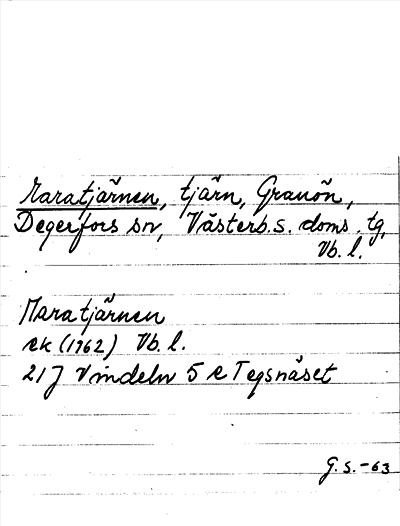 Maratjärnen, tjärn, Granön,
Degerfors sn, Västerb. s. doms. tg,
Vb. l.
Maratjärnen
ek (1962) Vb. l.
21J Vindeln 5 e Tegsnäset
G. S. -63